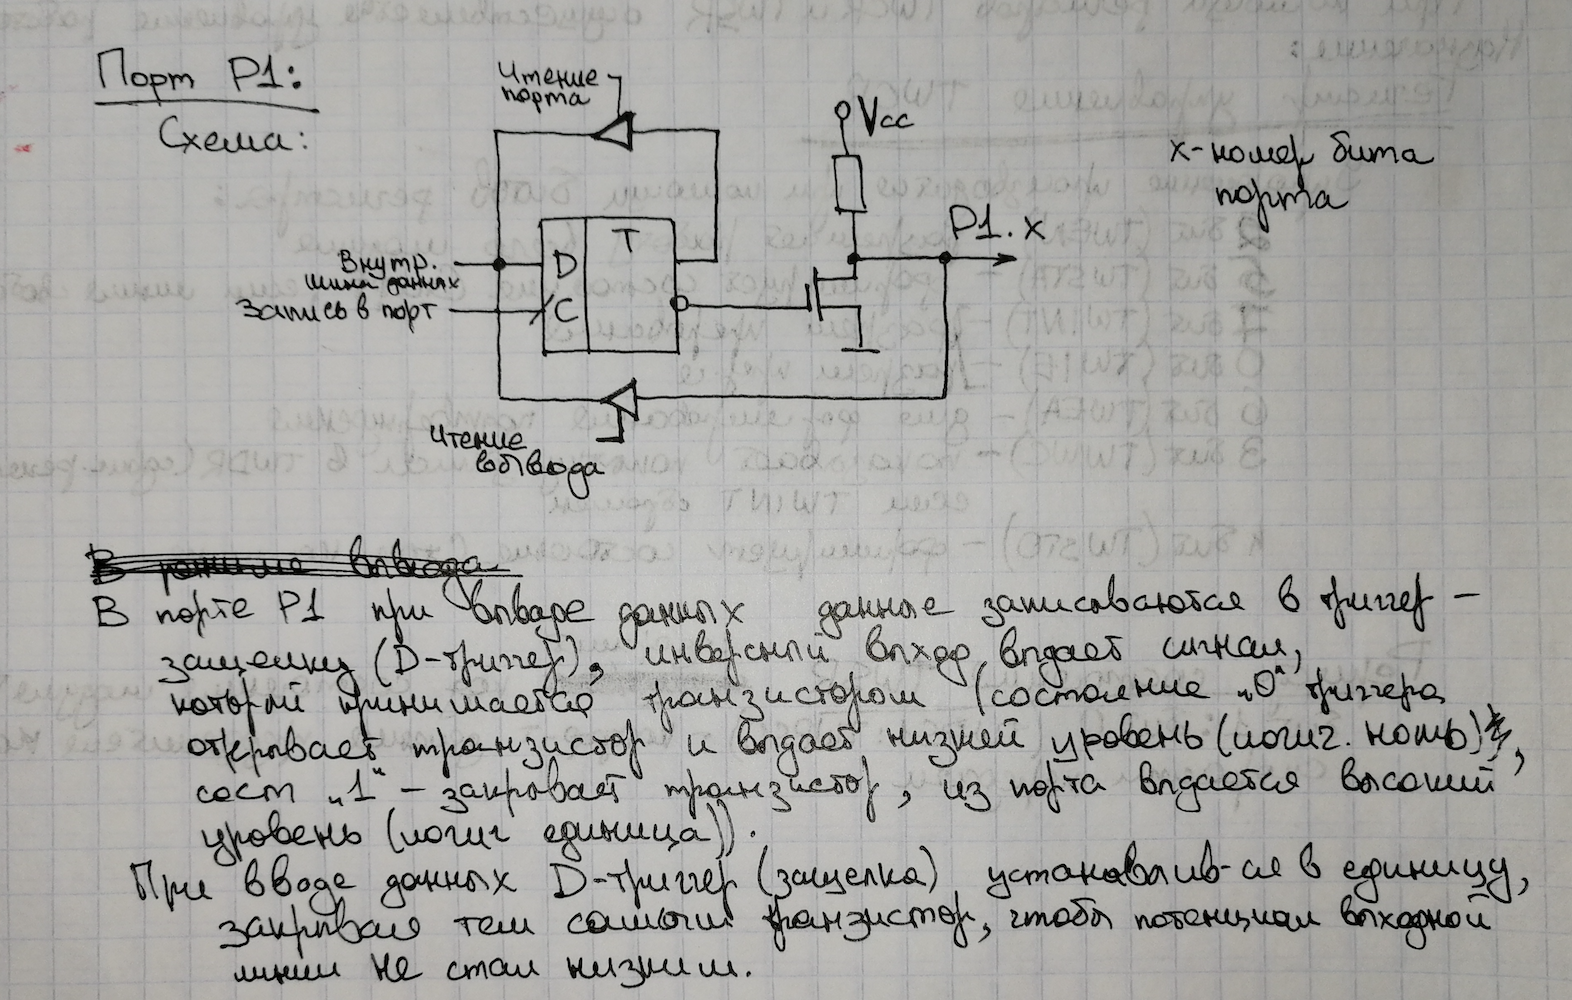 Порт P1:
Схема:
Чтение
порта
Vcc
x-номер бита
порта
P1.x
T
Внутр.
шина данных
D
Запись в порт
C
Чтение
вывода
В режиме вывода
В порте P1 при выводе данных данные записываются в триггер-
защелку (D-триггер), инверсный выход выдает сигнал,
который принимается транзистором (состояние „0“ триггера
открывает транзистор и выдает низкий уровень (логич. ноль),
сост „1“ - закрывает транзистор, из порта выдается высокий
уровень (логич единица)).
При вводе данных D-триггер (защелка) устанавлив-ся в единицу,
закрывая тем самым транзистор, чтобы потенциал выходной
линии не стал низким.